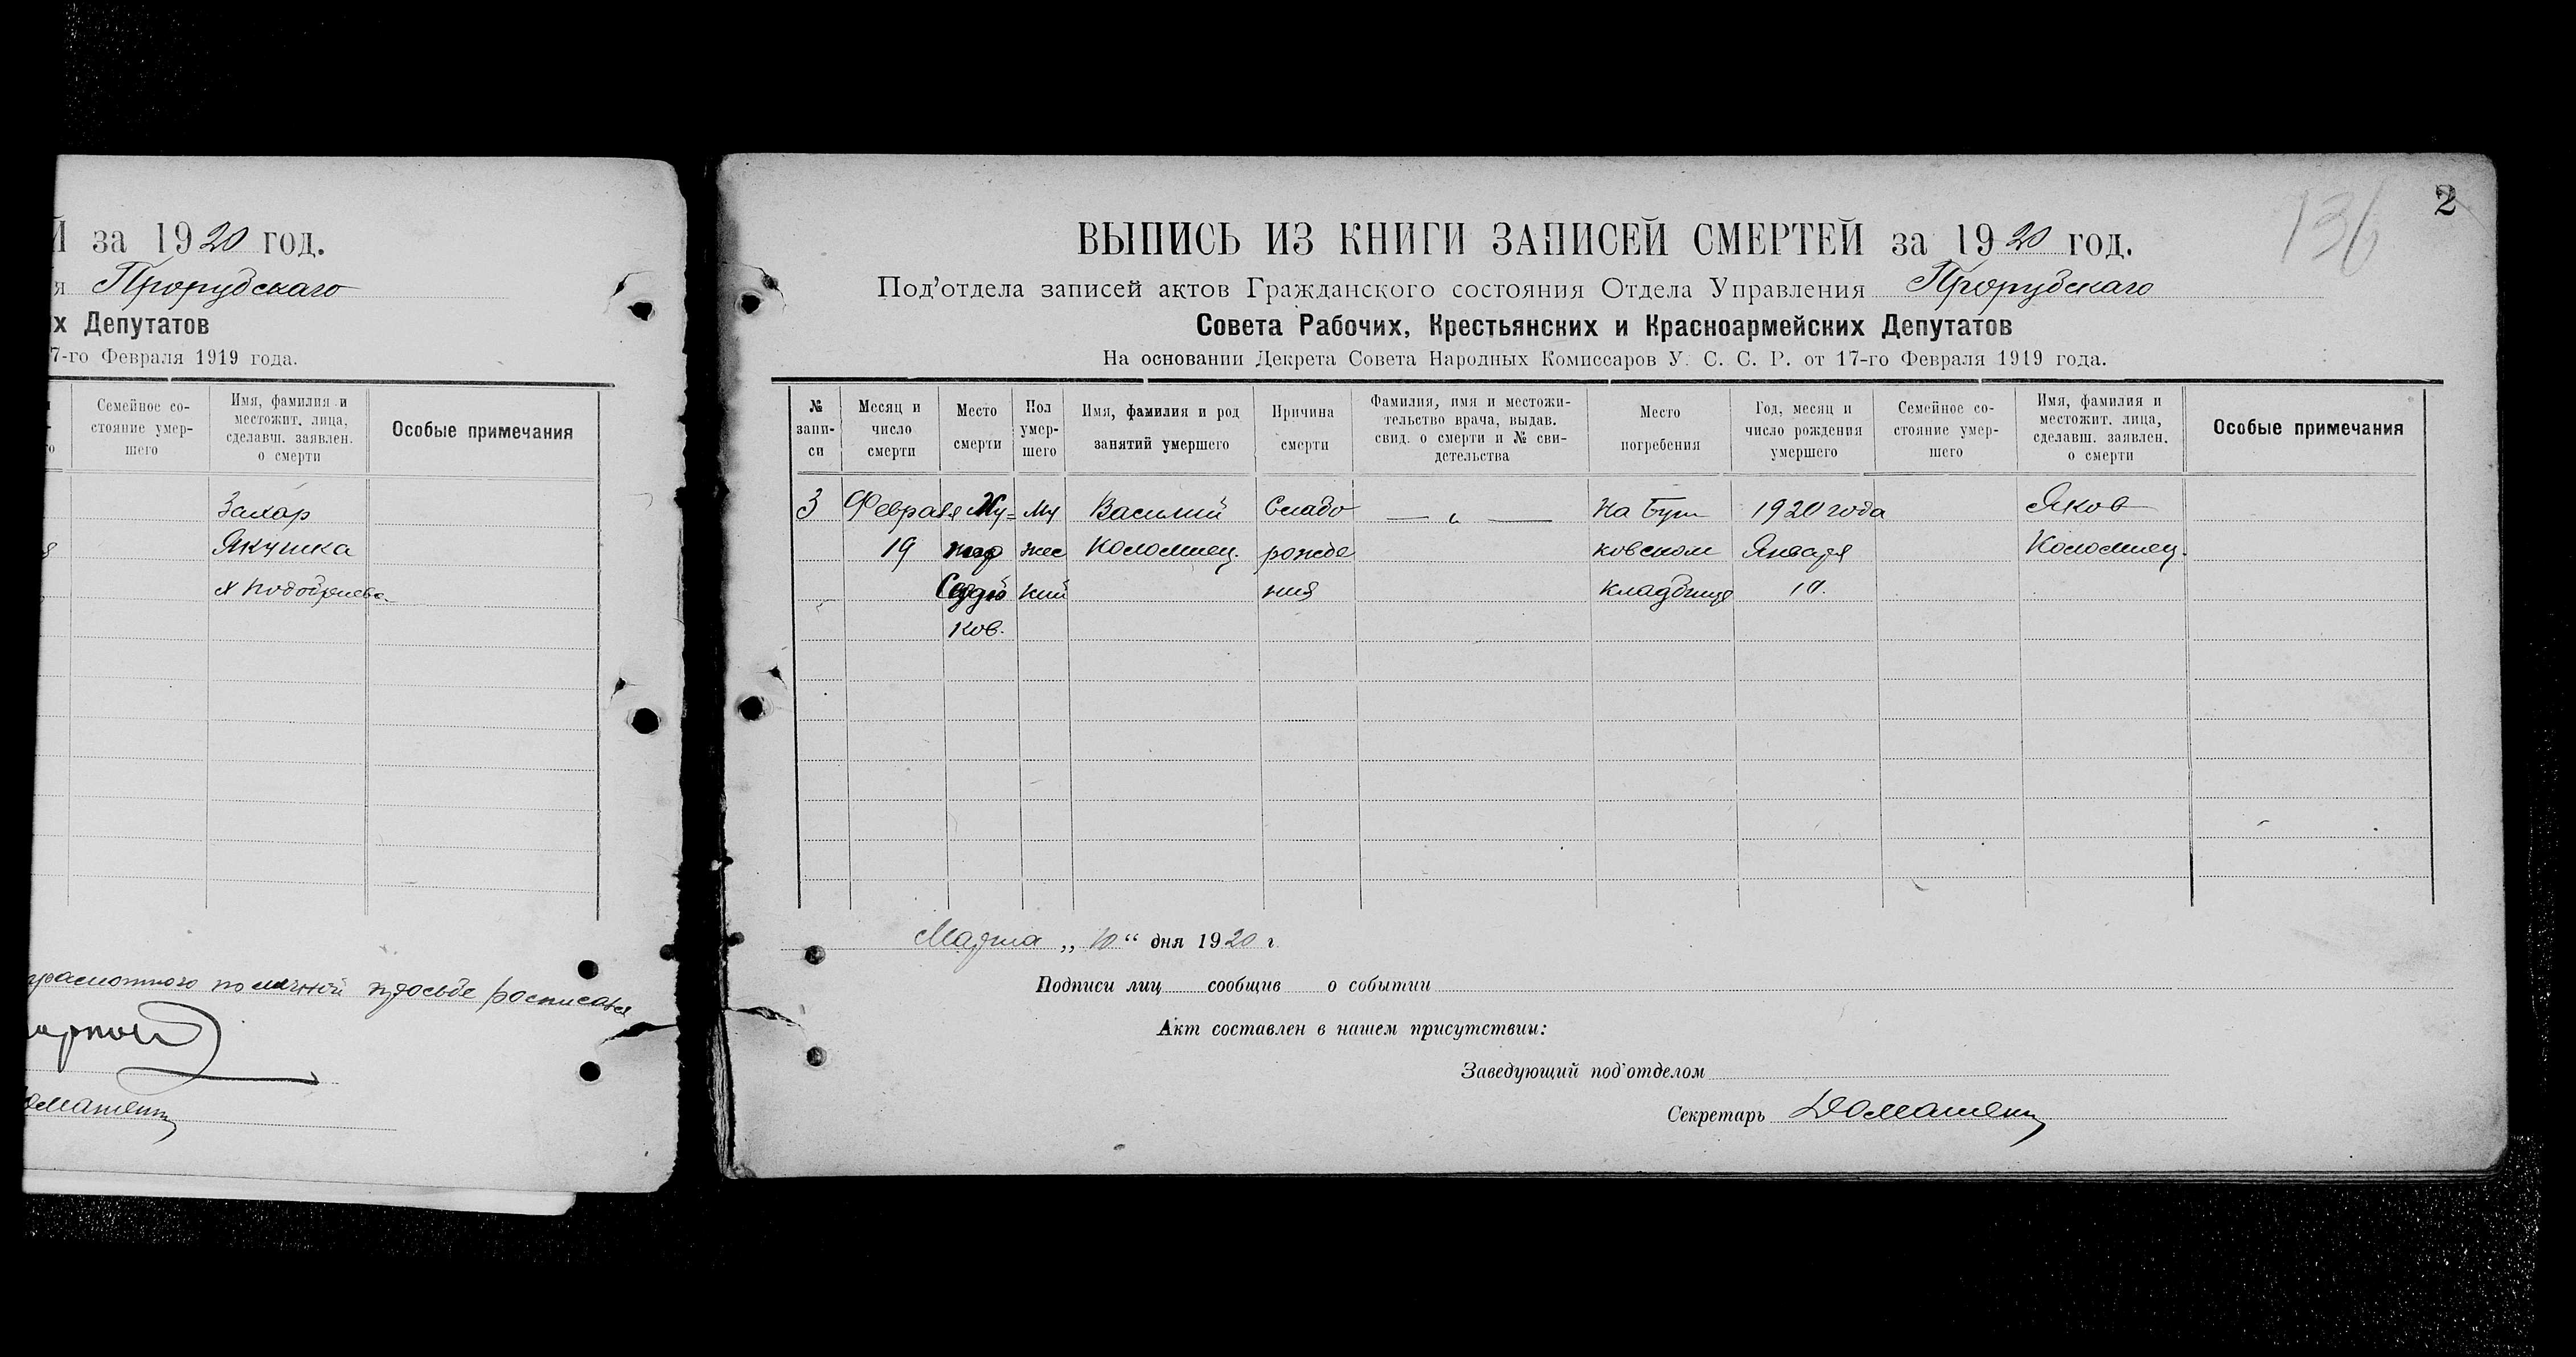 Й за 1920 год.
я Прорубскаго
х Депутатов
7-го Февраля 1919 года.
Семейное со-
стояние умер-
шего
Имя, фамилия и
местожит. лица,
сделавш. заявлен.
о смерти
Особые примечания
Захар
Якушка
расписался
2
136
ВЫПИСЬ ИЗ КНИГИ ЗАПИСЕЙ СМЕРТЕЙ за 1920 год.
Под'отдела записей актов Гражданского состояния Отдела Управления Прорубскаго
Совета Рабочих, Крестьянских и Красноармейских Депутатов
На основании Декрета Совета Народных Комиссаров У. С. С. Р. от 17-го Февраля 1919 года.
№
запи-
си
Месяц и
число
смерти
Место
смерти
Пол
умер-
шего
Имя, фамилия и род
занятий умершего
Причина
смерти
Фамилия, имя и местожи-
тельство врача, выдав.
свид. о смерти и № сви-
детельства
Место
погребения
Год, месяц и
число рождения
умершего
Семейное со-
стояние умер-
шего
Имя, фамилия и
местожит. лица,
сделавш. заявлен.
о смерти
Особые примечания
3 Февраля Ху= Му Василий Слабо — „ — На 1920 года Яков
19 тор жес Коломиец. рожде ковском Января Коломиец.
кий ния кладбище 10.
ков.
Марта „10“ дня 1920 г
Подписи лиц сообщив о событии
Акт составлен в нашем присутствии:
Заведующий под'отделом
Секретарь